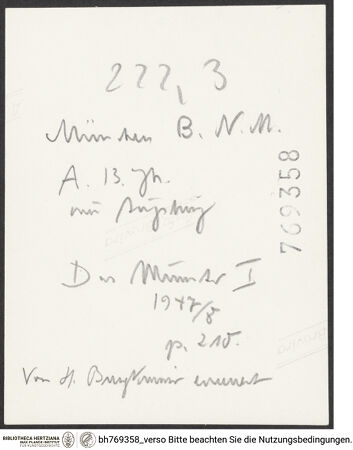 222, 3
München B. N. M.
A. 13. Jh.
aus Augsburg
769358
Das Münster I
1947/8
p. 210.
Von H. Burgkmair erneuert
BIBLIOTHECA HERTZIANA
MAX-PLANCK-INSTITUT
FÜR KUNSTGESCHICHTE
bh769358_verso Bitte beachten Sie die Nutzungsbedingungen.